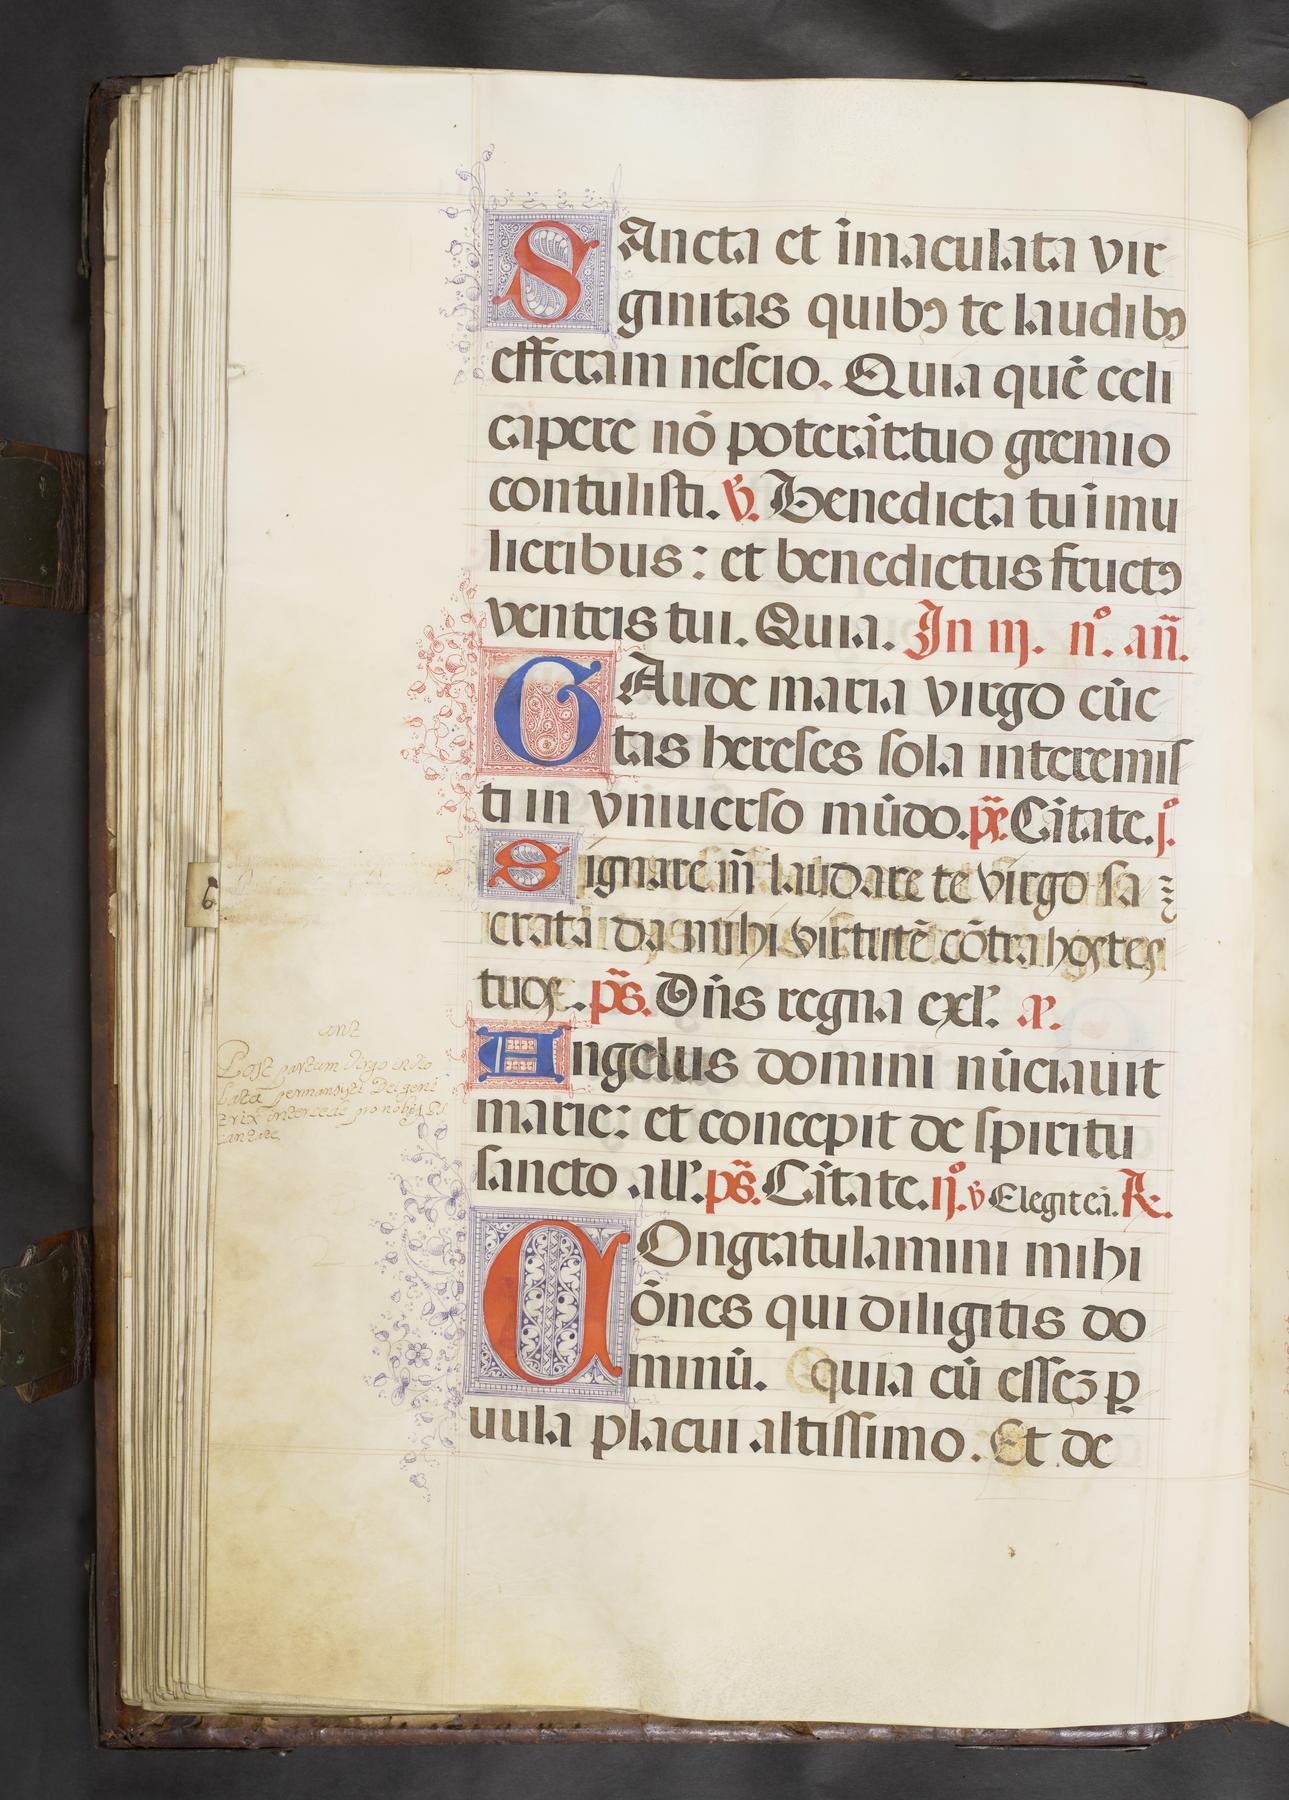 SAncta et īmaculata vir
ginitas quibꝯ te laudibꝯ
efferam nescio. Quia quē celi
capere nō poterāt: tuo gremio
contulisti. ℣. Benedicta tu ī mu
lieribus: et benedictus fructꝯ
ventris tui. Quia. In iij. n°. añ.
GAude maria virgo cūc
tas hereses sola interemis
ti in vniuerso mūdo. ps̃. Cātate. j°.
Signare m̄ laudare te virgo sa
crata da mihi virtutē cōtra hostes
tuos. ps̃. Dn̄s regna exl'. a.
Angelus domini nūciauit
marie: et concepit de spiritu
sancto all'. ps̃. Cātate. ij°. ℣ Elegit eā. ℟.
COngratulamini mihi
ōnes qui diligitis do
minū. quia cū essez ꝑ
uula placui altissimo. Et de
6
ant
Post partum virgo invio
lata permansisti Dei geni
trix intercede pro nobis ps
cantate